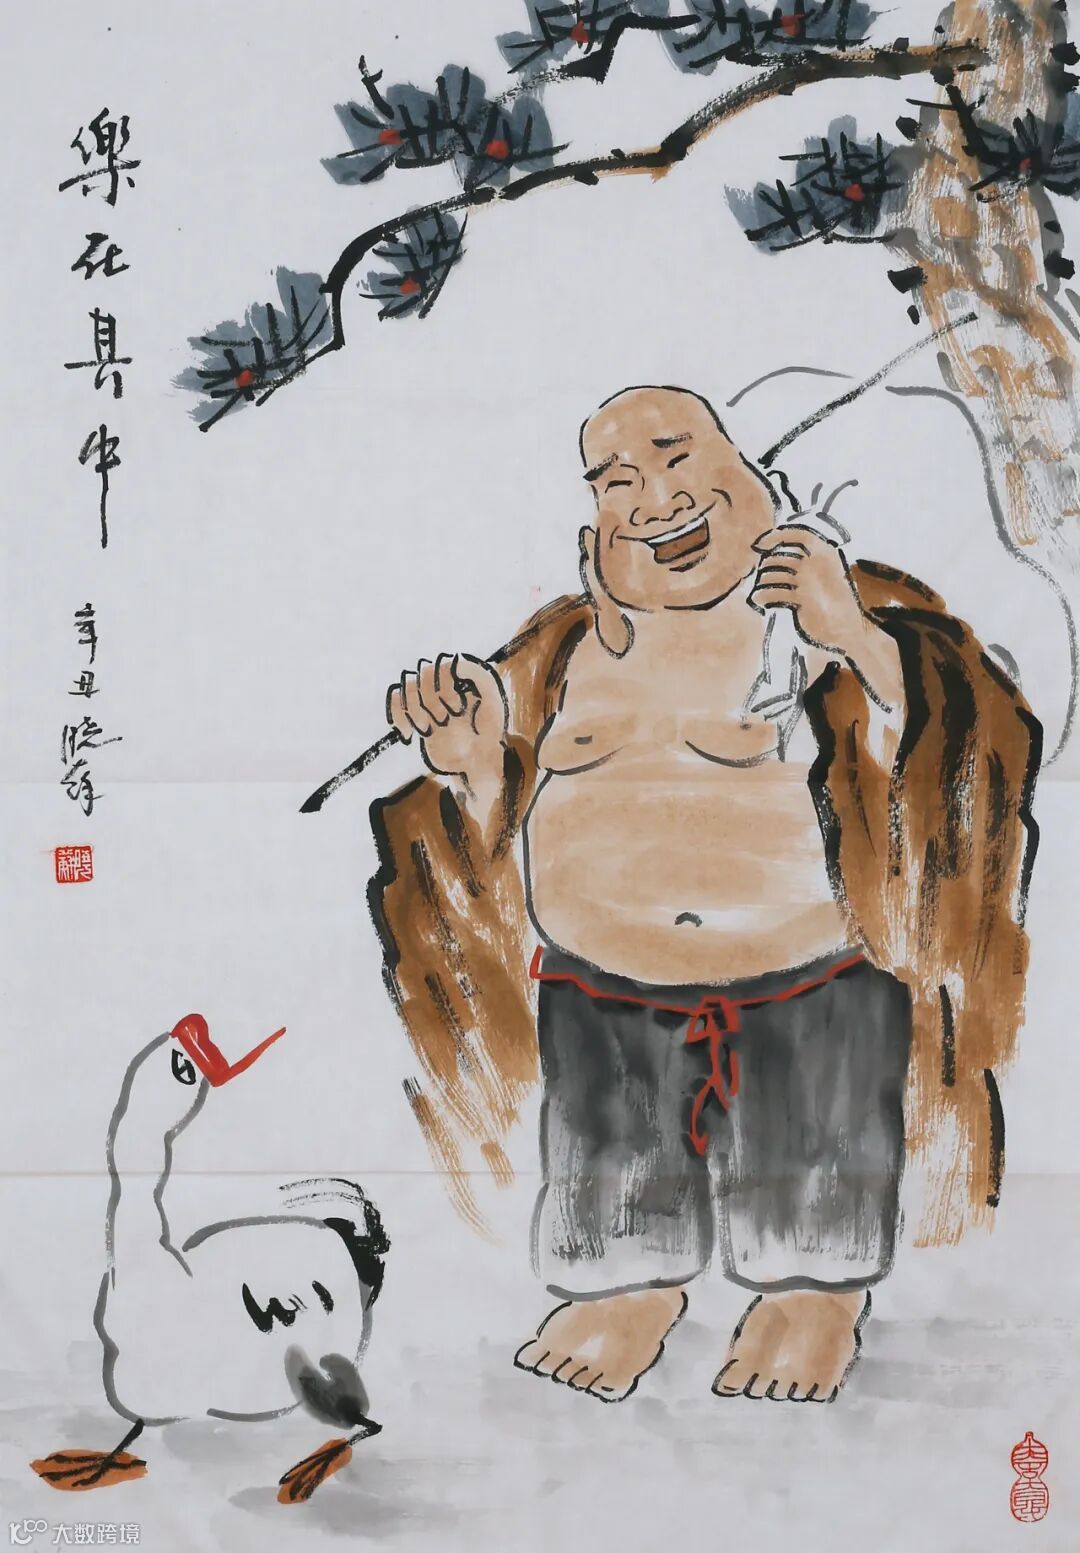 樂在其中
辛丑 晓
大数跨境